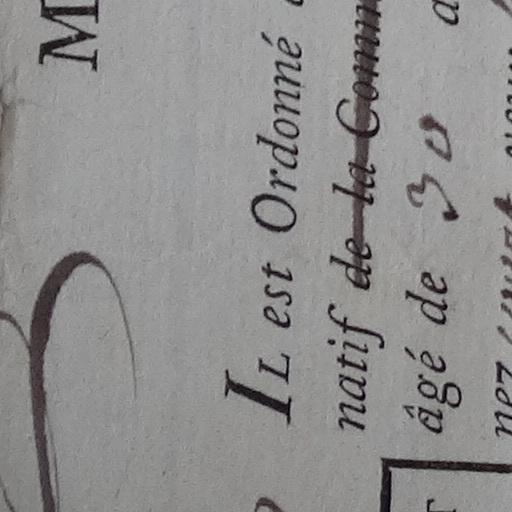 M
IL est Ordonné
natif de la Comm
âgé de 30 a
nez